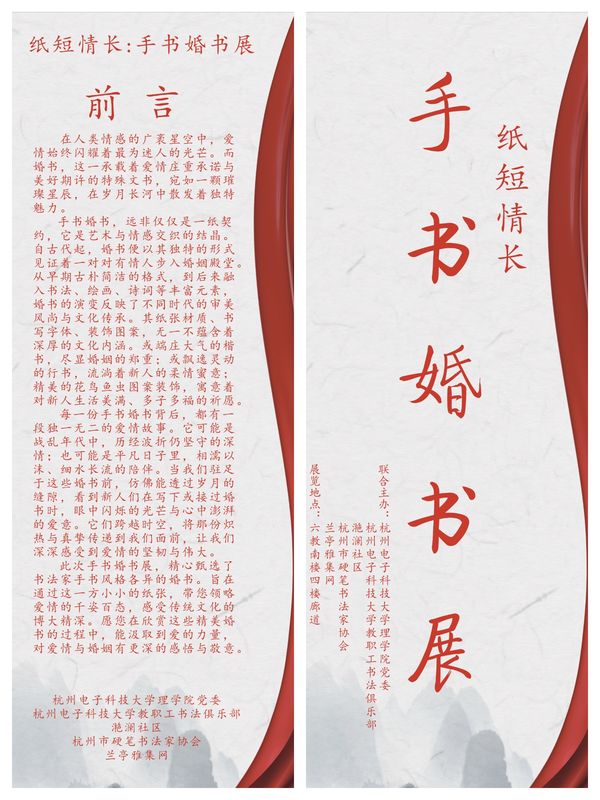 纸短情长:手书婚书展
前言
在人类情感的广袤星空中，爱
情始终闪耀着最为迷人的光芒。而
婚书，这一承载着爱情庄重承诺与
美好期许的特殊文书，宛如一颗璀
璨星辰，在岁月长河中散发着独特
魅力。
手书婚书，远非仅仅是一纸契
约，它是艺术与情感交织的结晶。
自古代起，婚书便以其独特的形式
见证着一对对有情人步入婚姻殿堂。
从早期古朴简洁的格式，到后来融
入书法、绘画、诗词等丰富元素，
婚书的演变反映了不同时代的审美
风尚与文化传承。其纸张材质、书
写字体、装饰图案，无一不蕴含着
深厚的文化内涵。或端庄大气的楷
书，尽显婚姻的郑重；或飘逸灵动
的行书，流淌着新人的柔情蜜意；
精美的花鸟鱼虫图案装饰，寓意着
对新人生活美满、多子多福的祈愿。
每一份手书婚书背后，都有一
段独一无二的爱情故事。它可能是
战乱年代中，历经波折仍坚守的深
情；也可能是平凡日子里，相濡以
沫、细水长流的陪伴。当我们驻足
于这些婚书前，仿佛能透过岁月的
缝隙，看到新人们在写下或接过婚
书时，眼中闪烁的光芒与心中澎湃
的爱意。它们跨越时空，将那份炽
热与真挚传递到我们面前，让我们
深深感受到爱情的坚韧与伟大。
此次手书婚书展，精心甄选了
书法家手书风格各异的婚书。旨在
通过这一方小小的纸张，带您领略
爱情的千姿百态，感受传统文化的
博大精深。愿您在欣赏这些精美婚
书的过程中，能汲取到爱的力量，
对爱情与婚姻有更深的感悟与敬意。
杭州电子科技大学理学院党委
杭州电子科技大学教职工书法俱乐部
滟澜社区
杭州市硬笔书法家协会
兰亭雅集网
纸短情长
手书婚书展
联合主办：杭州电子科技大学理学院党委
杭州电子科技大学教职工书法俱乐部
滟澜社区
杭州市硬笔书法家协会
兰亭雅集网
展览地点：六教南楼四楼廊道